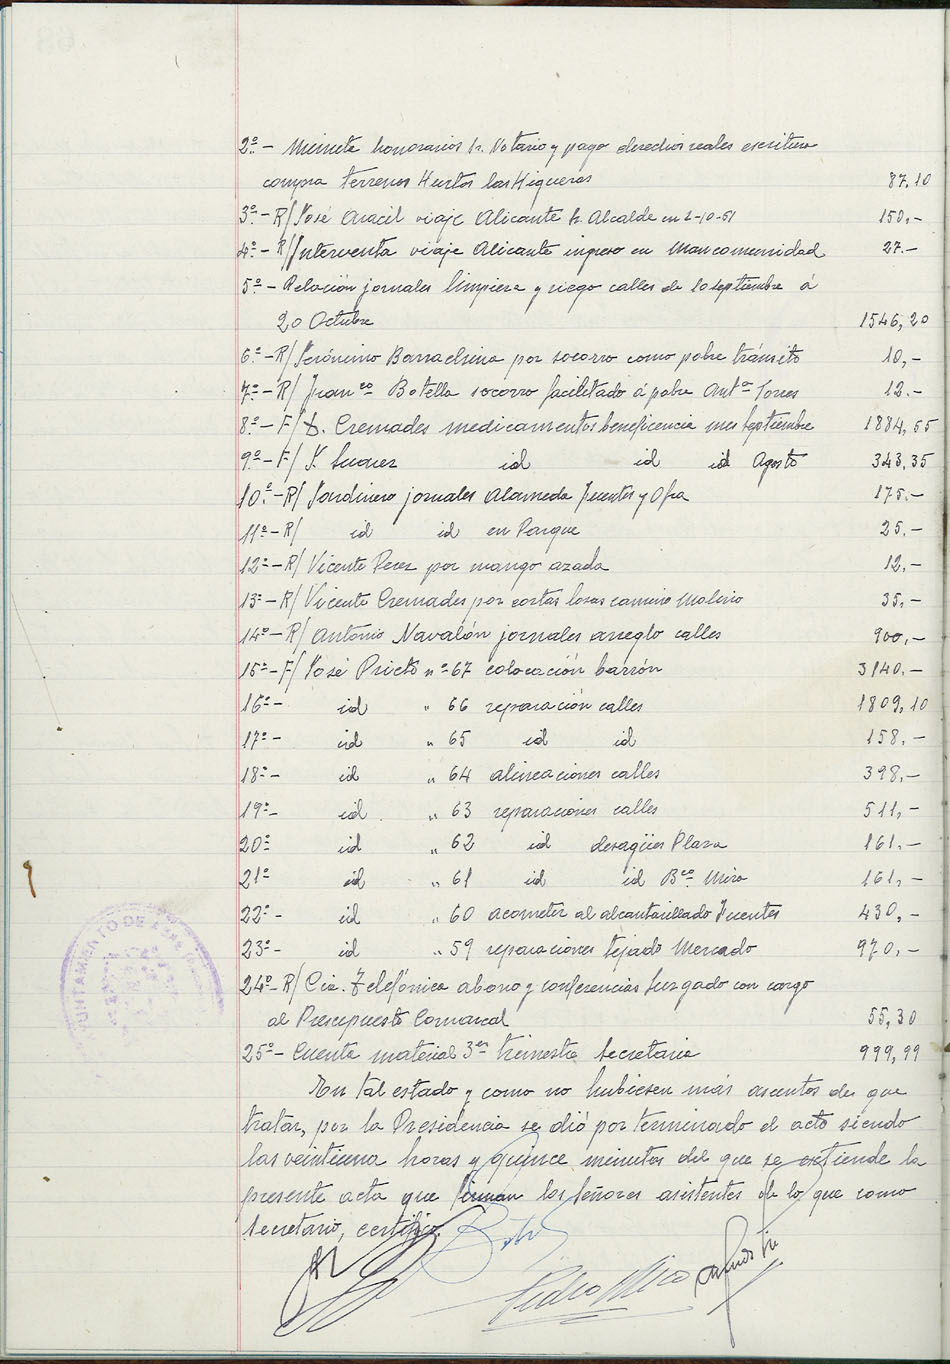 2º.- Minuta honorarios Sr. Notario y pago derechos reales escritura
compra terrenos Huertos las Higueras 87,10
3º.- R/ José Aracil viaje Alicante Sr. Alcalde en 2-10-51 150,-
4º.- R/ Interventor viaje Alicante ingreso en Mancomunidad 27.-
5º.- Relación jornales limpieza y riego calles de 20 septiembre á
20 Octubre 1546,20
6º.- R/ Jerónimo Barrachina por socorro como pobre tránsito 10,-
7º.- R/ Franco Botella socorro facilitado á pobre Antº Torres 12.-
8º.- F/ D. Cremades medicamentos beneficencia mes Septiembre 1884,55
9º.- F/ J. Suarez id id id Agosto 343,35
10º.- R/ Jardinero jornales Alameda Fuentes y Ofra 175.-
11º.- R/ id id en Parque 25.-
12º.- R/ Vicente Perez por mango azada 12.-
13º.- R/ Vicente Cremades por cortar losas camino Molino 35.-
14º.- R/ Antonio Navalón jornales arreglo calles 900,-
15º.- F/ José Prieto nº 67 colocación barrón 3140.-
16º.- id " 66 reparación calles 1809,10
17º.- id " 65 id id 158.-
18º.- id " 64 alineaciones calles 398,-
19º.- id . " 63 reparaciones calles 511,-
20º id " 62 id desagües Plaza 161.-
21º id " 61 id id Bco Miro 161,-
22º.- id " 60 acometer al alcantarillado Fuentes 430,-
23º.- id " 59 reparaciones tejado Mercado 970,-
24º.- R/ Cia. Telefónica abono y conferencias Juzgado con cargo
al Presupuesto Comarcal 55,30
25º.- Cuenta material 3er trimestre Secretaria 999,99
En tal estado y como no hubiesen más asuntos de que
tratar, por la Presidencia se dió por terminado el acto siendo
las veintiuna horas y quince minutos del que se extiende la
presente acta que firman los señores asistentes de lo que como
Secretario, certifico.
Pedro Mico
AYUNTAMIENTO DE